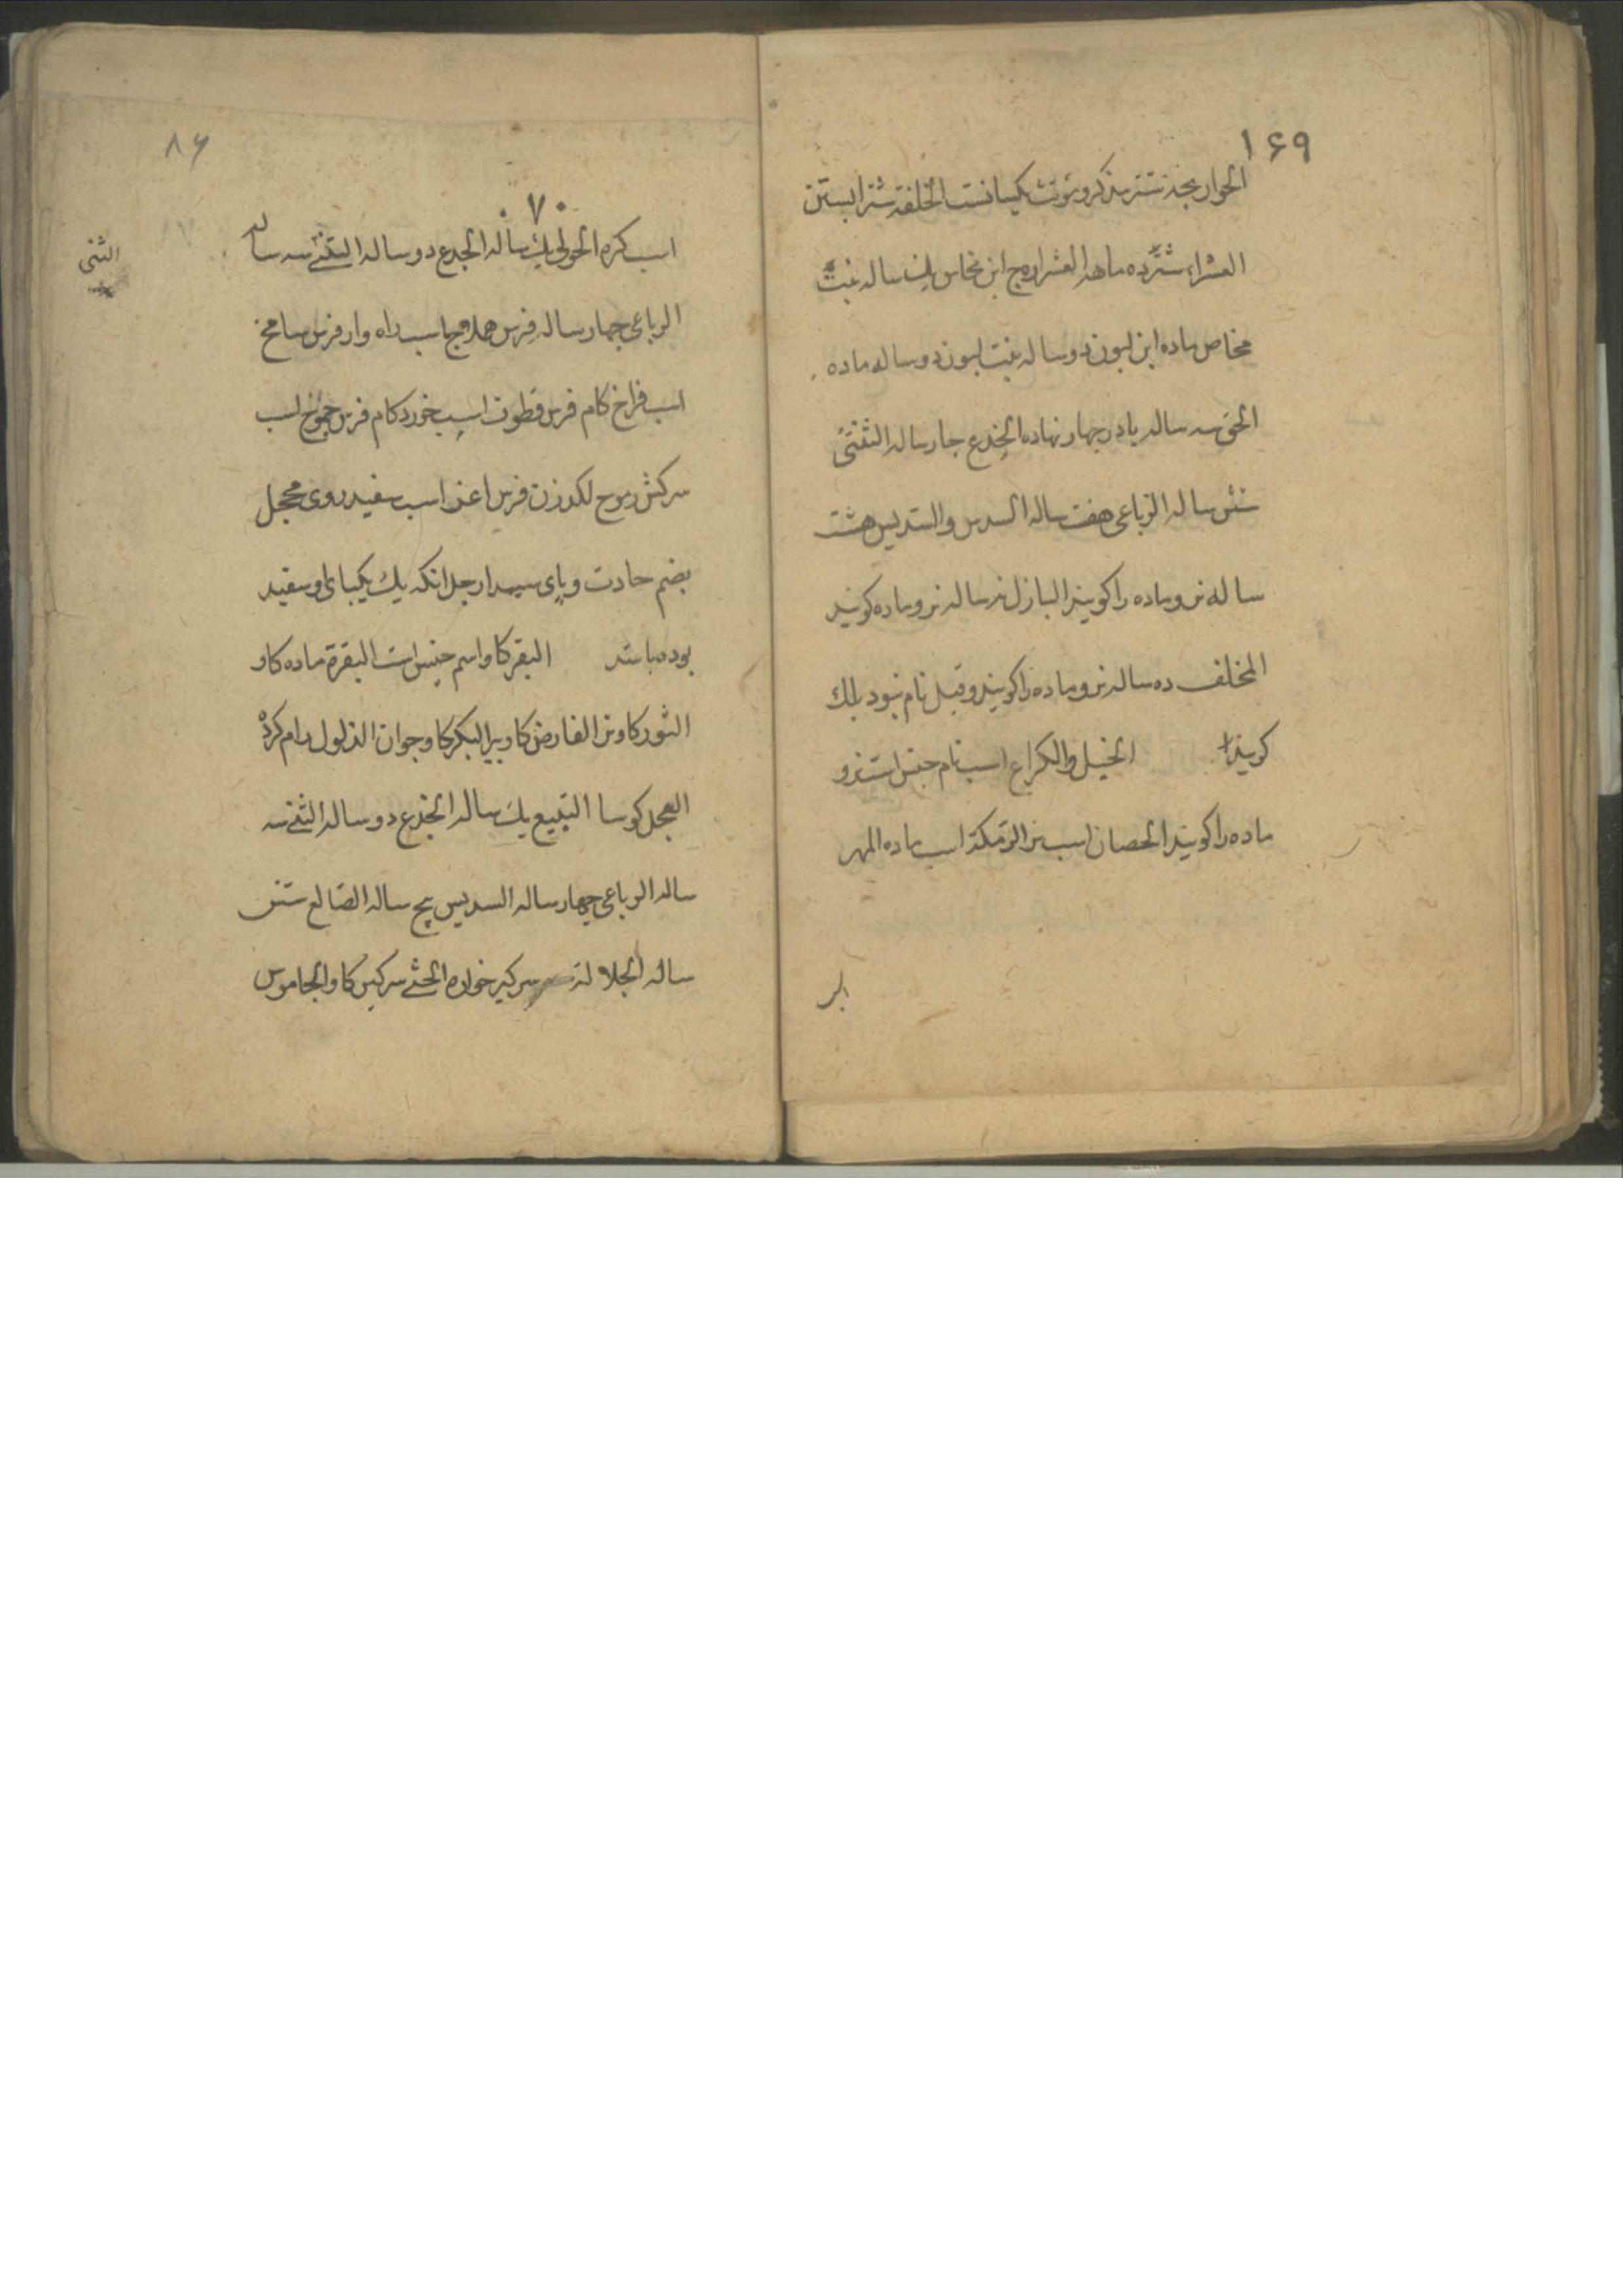 ۱۶۹
الحوار بچه شتر مذکر و مؤنث یکسانست الخلفة شتر ابستن
العشراء شتر ده ماهه العشار ج ابن مخاض یك ساله بنت
مخاض ماده ابن لبون دو ساله بنت لبون دو ساله ماده
الحق سه ساله پا در چهار نهاده الجذع چار ساله الثنی
شش ساله الرباعی هفت ساله السدس والسدیس هشت
ساله نر و ماده را کویند البازل نه ساله نر و ماده کویند
المخلف ده ساله نر و ماده را کویند و قبل نام نبود بلك
کویند الخیل والکراع اسب نام جنس است نر و
ماده را کویند الحصان اسب نر الرمکة اسب ماده المهر
۸۶
۷۰
اسب کره الحولی یك ساله الجدع دو ساله الثنی سه ساله
الثنی
الرباعی چهار ساله فرس هملاج اسب راه وار فرس
اسب فراخ کام فرس قطوف اسب خورد کام فرس جموح اسب
سرکش رموح لکد زن فرس اغر اسب سفید روی محجل
بضم جا دست و پای ارجل انکه یك یکپای او سفید
بوده باشد البقر کاو اسم جنس است البقرة ماده کاو
الثور کاو نر الفارض کاو پیر البکر کاو جوان الذلول رام کرده
العجل کوسا التبیع یك ساله الجذع دو ساله الثنی سه
ساله الرباعی چهار ساله السدیس پنج ساله الصالع شش
ساله الجلالة سرکین خواره الخثی سرکین کاو الجاموس